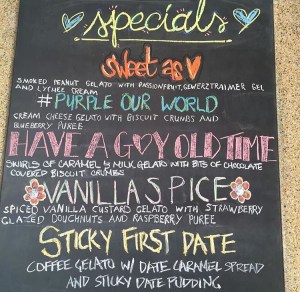 specials
sweet as
SMOKED PEANUT GELATO WITH PASSIONFRUIT, GEWERZTRAIMER GEL
AND LYCHEE CREAM
#PURPLE OUR WORLD
CREAM CHEESE GELATO WITH BISCUIT CRUMBS AND
BLUEBERRY PUREE
HAVE A G♡Y OLD TIME
SWIRLS OF CARAMEL & MILK GELATO WITH BITS OF CHOCOLATE
COVERED BISCUIT CRUMBS
VANILLA SPICE
SPICED VANILLA CUSTARD GELATO WITH STRAWBERRY
GLAZED DOUGHNUTS AND RASPBERRY PUREE
STICKY FIRST DATE
COFFEE GELATO W/ DATE CARAMEL SPREAD
AND STICKY DATE PUDDING